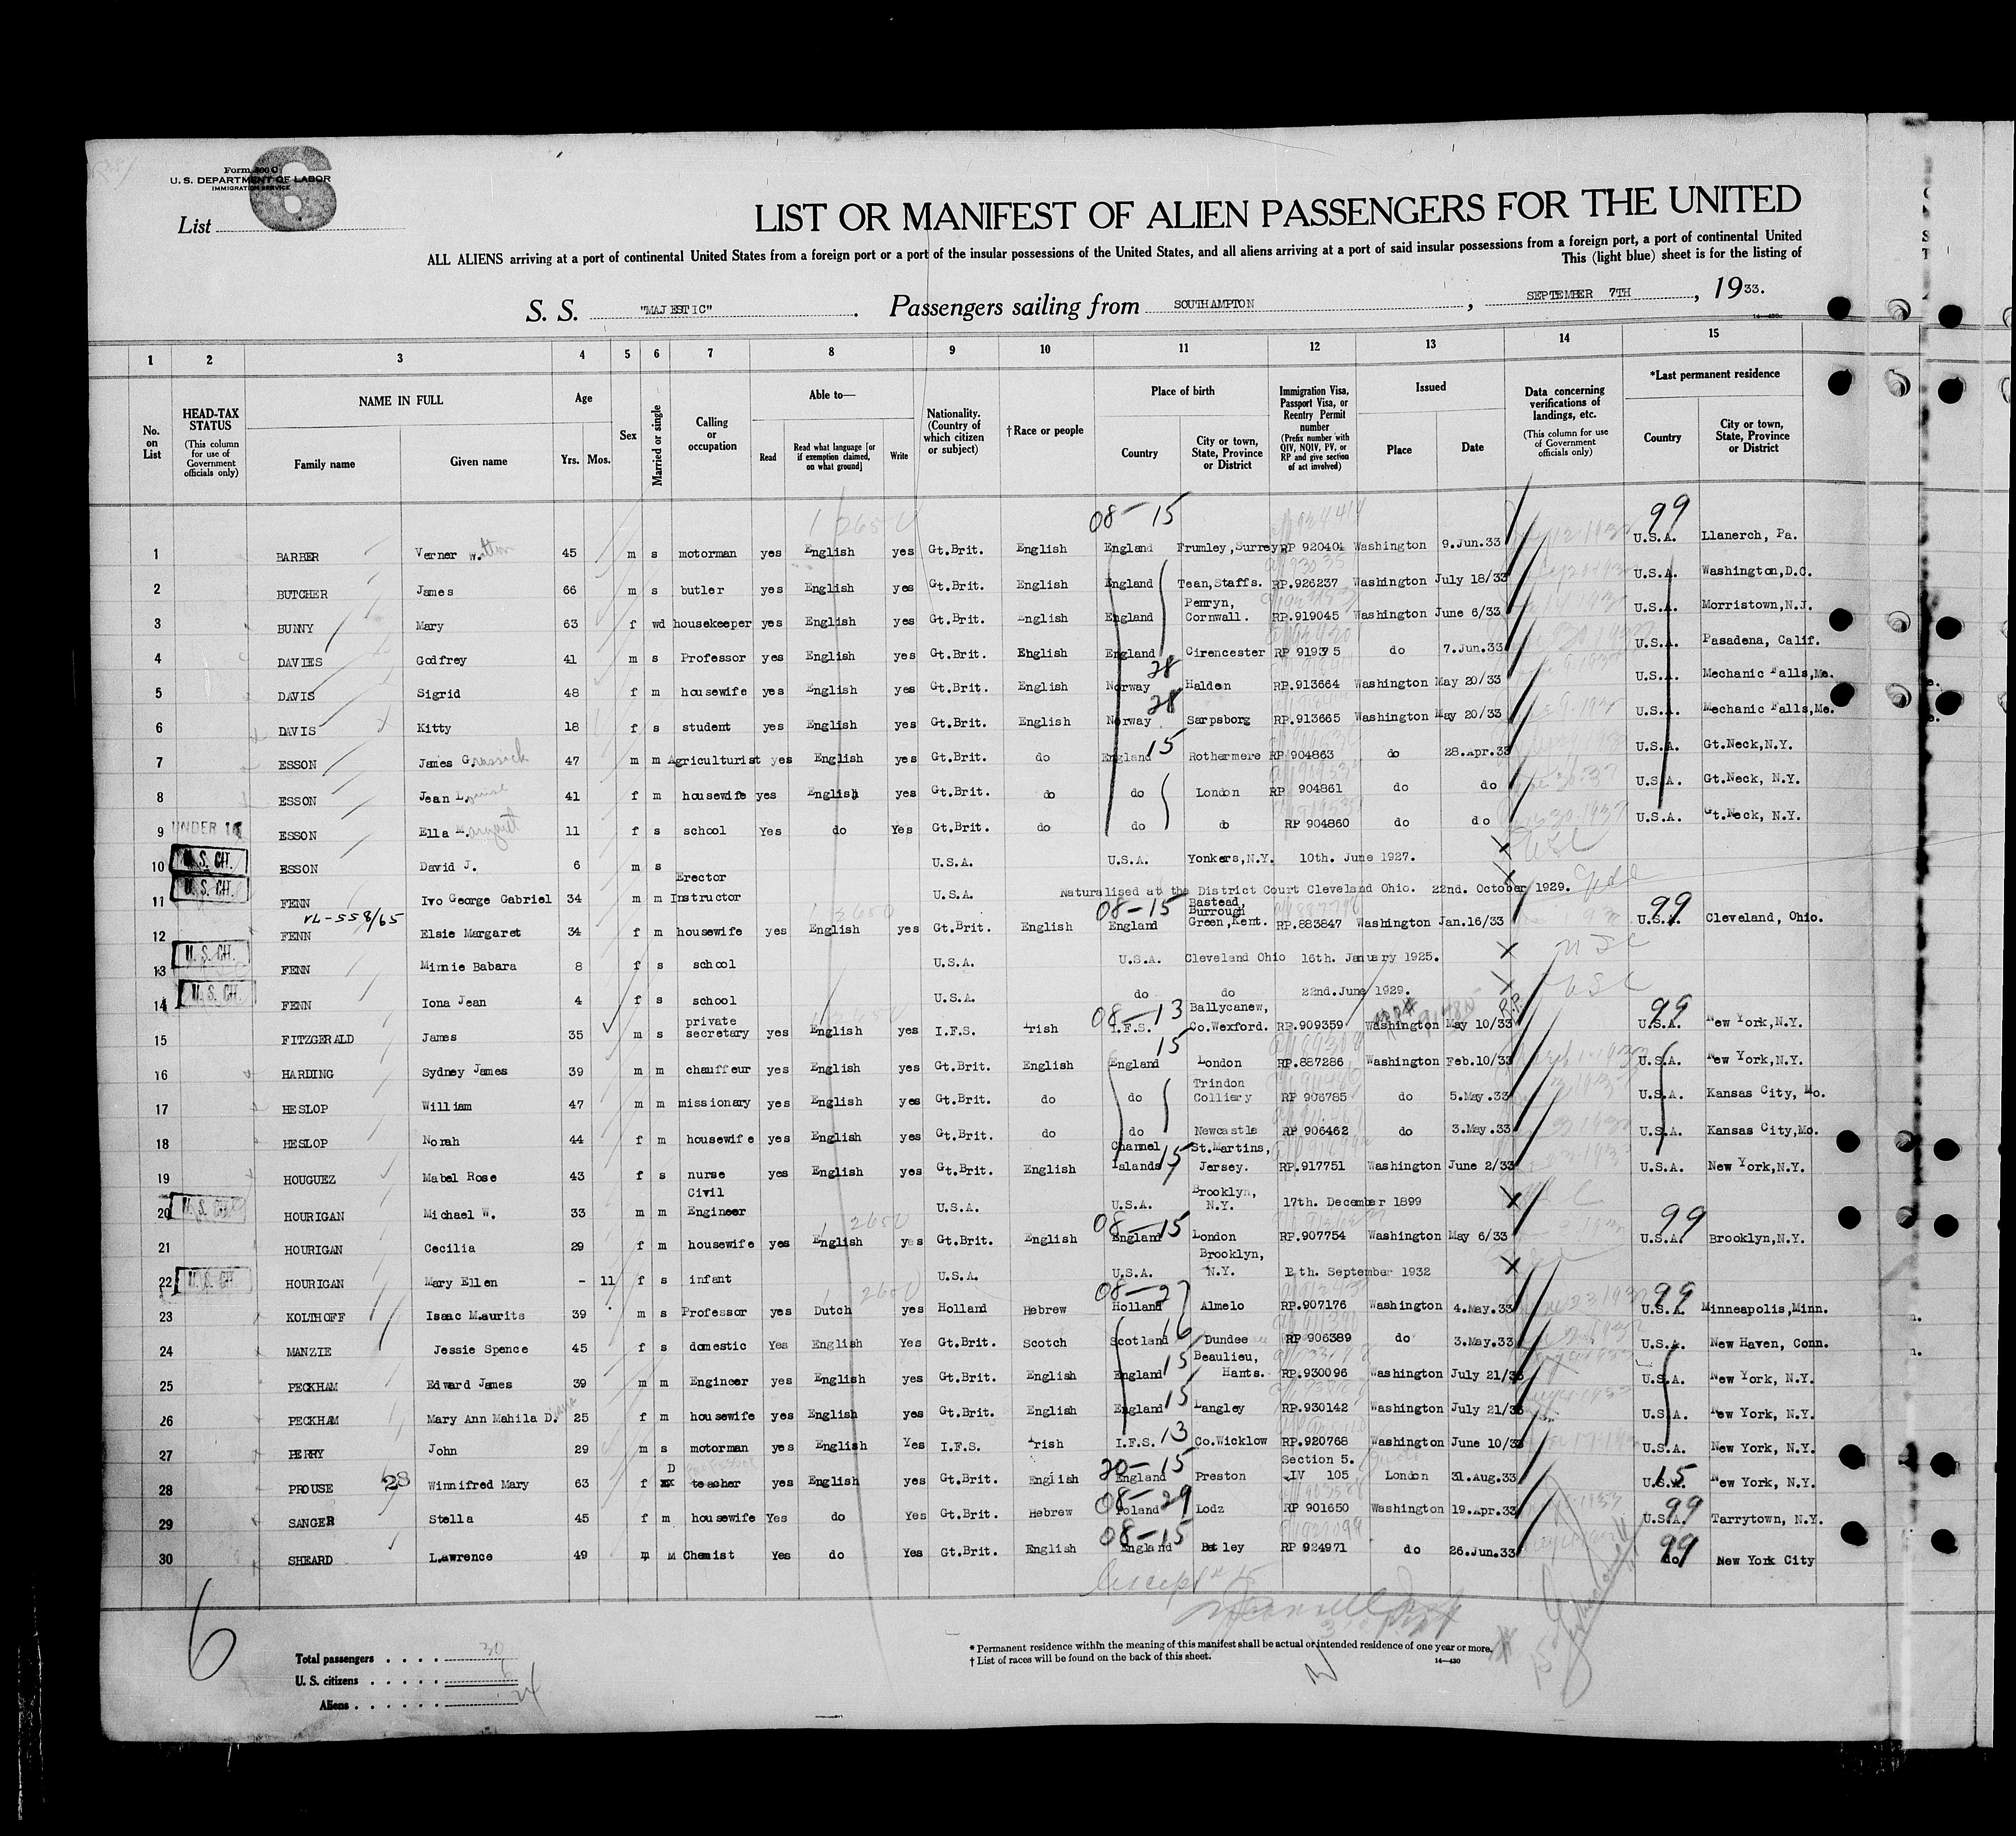 Form 500 C
U. S. DEPARTMENT OF LABOR
IMMIGRATION SERVICE
List 6
LIST OR MANIFEST OF ALIEN PASSENGERS FOR THE UNITED
ALL ALIENS arriving at a port of continental United States from a foreign port or a port of the insular possessions of the United States, and all aliens arriving at a port of said insular possessions from a foreign port, a port of continental United
This (light blue) sheet is for the listing of
S. S. "MAJESTIC". Passengers sailing from SOUTHAMPTON, SEPTEMBER 7TH, 1933.
14—430
1 2 3 4 5 6 7 8 9 10 11 12 13 14 15
No. on List
HEAD-TAX STATUS (This column for use of Government officials only)
NAME IN FULL Family name Given name
Age Yrs. Mos.
Sex
Married or single
Calling or occupation
Able to— Read Read what language [or if exemption claimed, on what ground] Write
Nationality. (Country of which citizen or subject)
†Race or people
Place of birth Country City or town, State, Province or District
Immigration Visa, Passport Visa, or Reentry Permit number (Prefix number with QIV, NQIV, PV, or RP and give section of act involved)
Issued Place Date
Data concerning verifications of landings, etc. (This column for use of Government officials only)
*Last permanent residence Country City or town, State, Province or District
08-15 99
1 BARBER Verner W. 45 m s motorman yes English yes Gt.Brit. English England Frumley,Surrey RP 920401 Washington 9.Jun.33 U.S.A. Llanerch, Pa.
2 BUTCHER James 66 m s butler yes English yes Gt.Brit. English England Tean,Staffs. RP.926237 Washington July 18/33 U.S.A. Washington,D.C.
3 BUNNY Mary 63 f wd housekeeper yes English yes Gt.Brit. English England Penryn, Cornwall. RP.919045 Washington June 6/33 U.S.A. Morristown,N.J.
4 DAVIES Godfrey 41 m s Professor yes English yes Gt.Brit. English England Cirencester RP 919375 do 7.Jun.33 U.S.A. Pasadena, Calif.
5 DAVIS Sigrid 48 f m housewife yes English yes Gt.Brit. English Norway 28 Halden RP.913664 Washington May 20/33 U.S.A. Mechanic Falls,Me.
6 DAVIS Kitty 18 f s student yes English yes Gt.Brit. English Norway 28 Sarpsborg RP.913665 Washington May 20/33 U.S.A. Mechanic Falls,Me.
7 ESSON James G. 47 m m Agriculturist yes English yes Gt.Brit. do England 15 Rothermere RP 904863 do 28.Apr.33 U.S.A. Gt.Neck,N.Y.
8 ESSON Jean L. 41 f m housewife yes English yes Gt.Brit. do do London RP 904861 do do U.S.A. Gt.Neck, N.Y.
9 UNDER 16 ESSON Ella M. 11 f s school Yes do Yes Gt.Brit. do do do RP 904860 do do U.S.A. Gt.Neck, N.Y.
10 U. S. CIT. ESSON David J. 6 m s U.S.A. U.S.A. Yonkers,N.Y. 10th. June 1927. USC
11 U. S. CIT. FENN Ivo George Gabriel 34 m m Erector Instructor U.S.A. Naturalised at the District Court Cleveland Ohio. 22nd. October 1929.
12 FENN Elsie Margaret 34 f m housewife yes English yes Gt.Brit. English England 08-15 Bastead, Burrough Green,Kent. RP.883847 Washington Jan.16/33 U.S.A. 99 Cleveland, Ohio.
13 U. S. CIT. FENN Minnie Babara 8 f s school U.S.A. U.S.A. Cleveland Ohio 16th. January 1925. USC
14 U. S. CIT. FENN Iona Jean 4 f s school U.S.A. do do 22nd.June 1929. USC
15 FITZGERALD James 35 m s private secretary yes English yes I.F.S. Irish I.F.S. 08-13 Ballycanew, Co.Wexford. RP.909359 Washington May 10/33 U.S.A. 99 New York,N.Y.
16 HARDING Sydney James 39 m m chauffeur yes English yes Gt.Brit. English England 15 London RP.887286 Washington Feb.10/33 U.S.A. New York,N.Y.
17 HESLOP William 47 m m missionary yes English yes Gt.Brit. do do Trindon Colliery RP 908785 do 5.May.33 U.S.A. Kansas City, Mo.
18 HESLOP Norah 44 f m housewife yes English yes Gt.Brit. do do Newcastle RP 906462 do 3.May.33 U.S.A. Kansas City,Mo.
19 HOUGUEZ Mabel Rose 43 f s nurse yes English yes Gt.Brit. English Channel Islands 15 St.Martins, Jersey. RP.917751 Washington June 2/33 U.S.A. New York,N.Y.
20 U. S. CIT. HOURIGAN Michael W. 33 m m Civil Engineer U.S.A. U.S.A. Brooklyn, N.Y. 17th. December 1899
21 HOURIGAN Cecilia 29 f m housewife yes English yes Gt.Brit. English England 08-15 London RP.907754 Washington May 6/33 U.S.A. 99 Brooklyn,N.Y.
22 U. S. CIT. HOURIGAN Mary Ellen - 11 f s infant U.S.A. U.S.A. Brooklyn, N.Y. September 1932
23 KOLTHOFF Isaac Maurits 39 m s Professor yes Dutch yes Holland Hebrew Holland 08-27 Almelo RP.907176 Washington 4.May.33 U.S.A. 99 Minneapolis,Minn.
24 MANZIE Jessie Spence 45 f s domestic Yes English Yes Gt.Brit. Scotch Scotland Dundee RP 906389 do 3.May.33 U.S.A. New Haven, Conn.
25 PECKHAM Edward James 39 m m Engineer yes English yes Gt.Brit. English England 15 Beaulieu, Hants. RP.930096 Washington July 21/33 U.S.A. New York, N.Y.
26 PECKHAM Mary Ann Mahila D. 25 f m housewife yes English yes Gt.Brit. English England 15 Langley RP.930142 Washington July 21/33 U.S.A. New York, N.Y.
27 PERRY John 29 m s motorman yes English Yes I.F.S. Irish I.F.S. 13 Co.Wicklow RP.920768 Washington June 10/33 U.S.A. New York, N.Y.
28 PROUSE 28 Winnifred Mary 63 f D teacher yes English yes Gt.Brit. English England 20-15 Preston Section 5. QIV 105 London 31.Aug.33 U.S.A. 15 New York, N.Y.
29 SANGER Stella 45 f m housewife Yes do Yes Gt.Brit. Hebrew Poland 08-29 Lodz RP 901650 Washington 19.Apr.33 U.S.A. 99 Tarrytown, N.Y.
30 SHEARD Lawrence 49 m M Chemist Yes do Yes Gt.Brit. English England 08-15 Batley RP 924971 do 26.Jun.33 do 99 New York City
6
Total passengers . . . . 30
U. S. citizens . . . . . 6
Aliens . . . . . . 24
* Permanent residence within the meaning of this manifest shall be actual or intended residence of one year or more.
† List of races will be found on the back of this sheet.
14—430